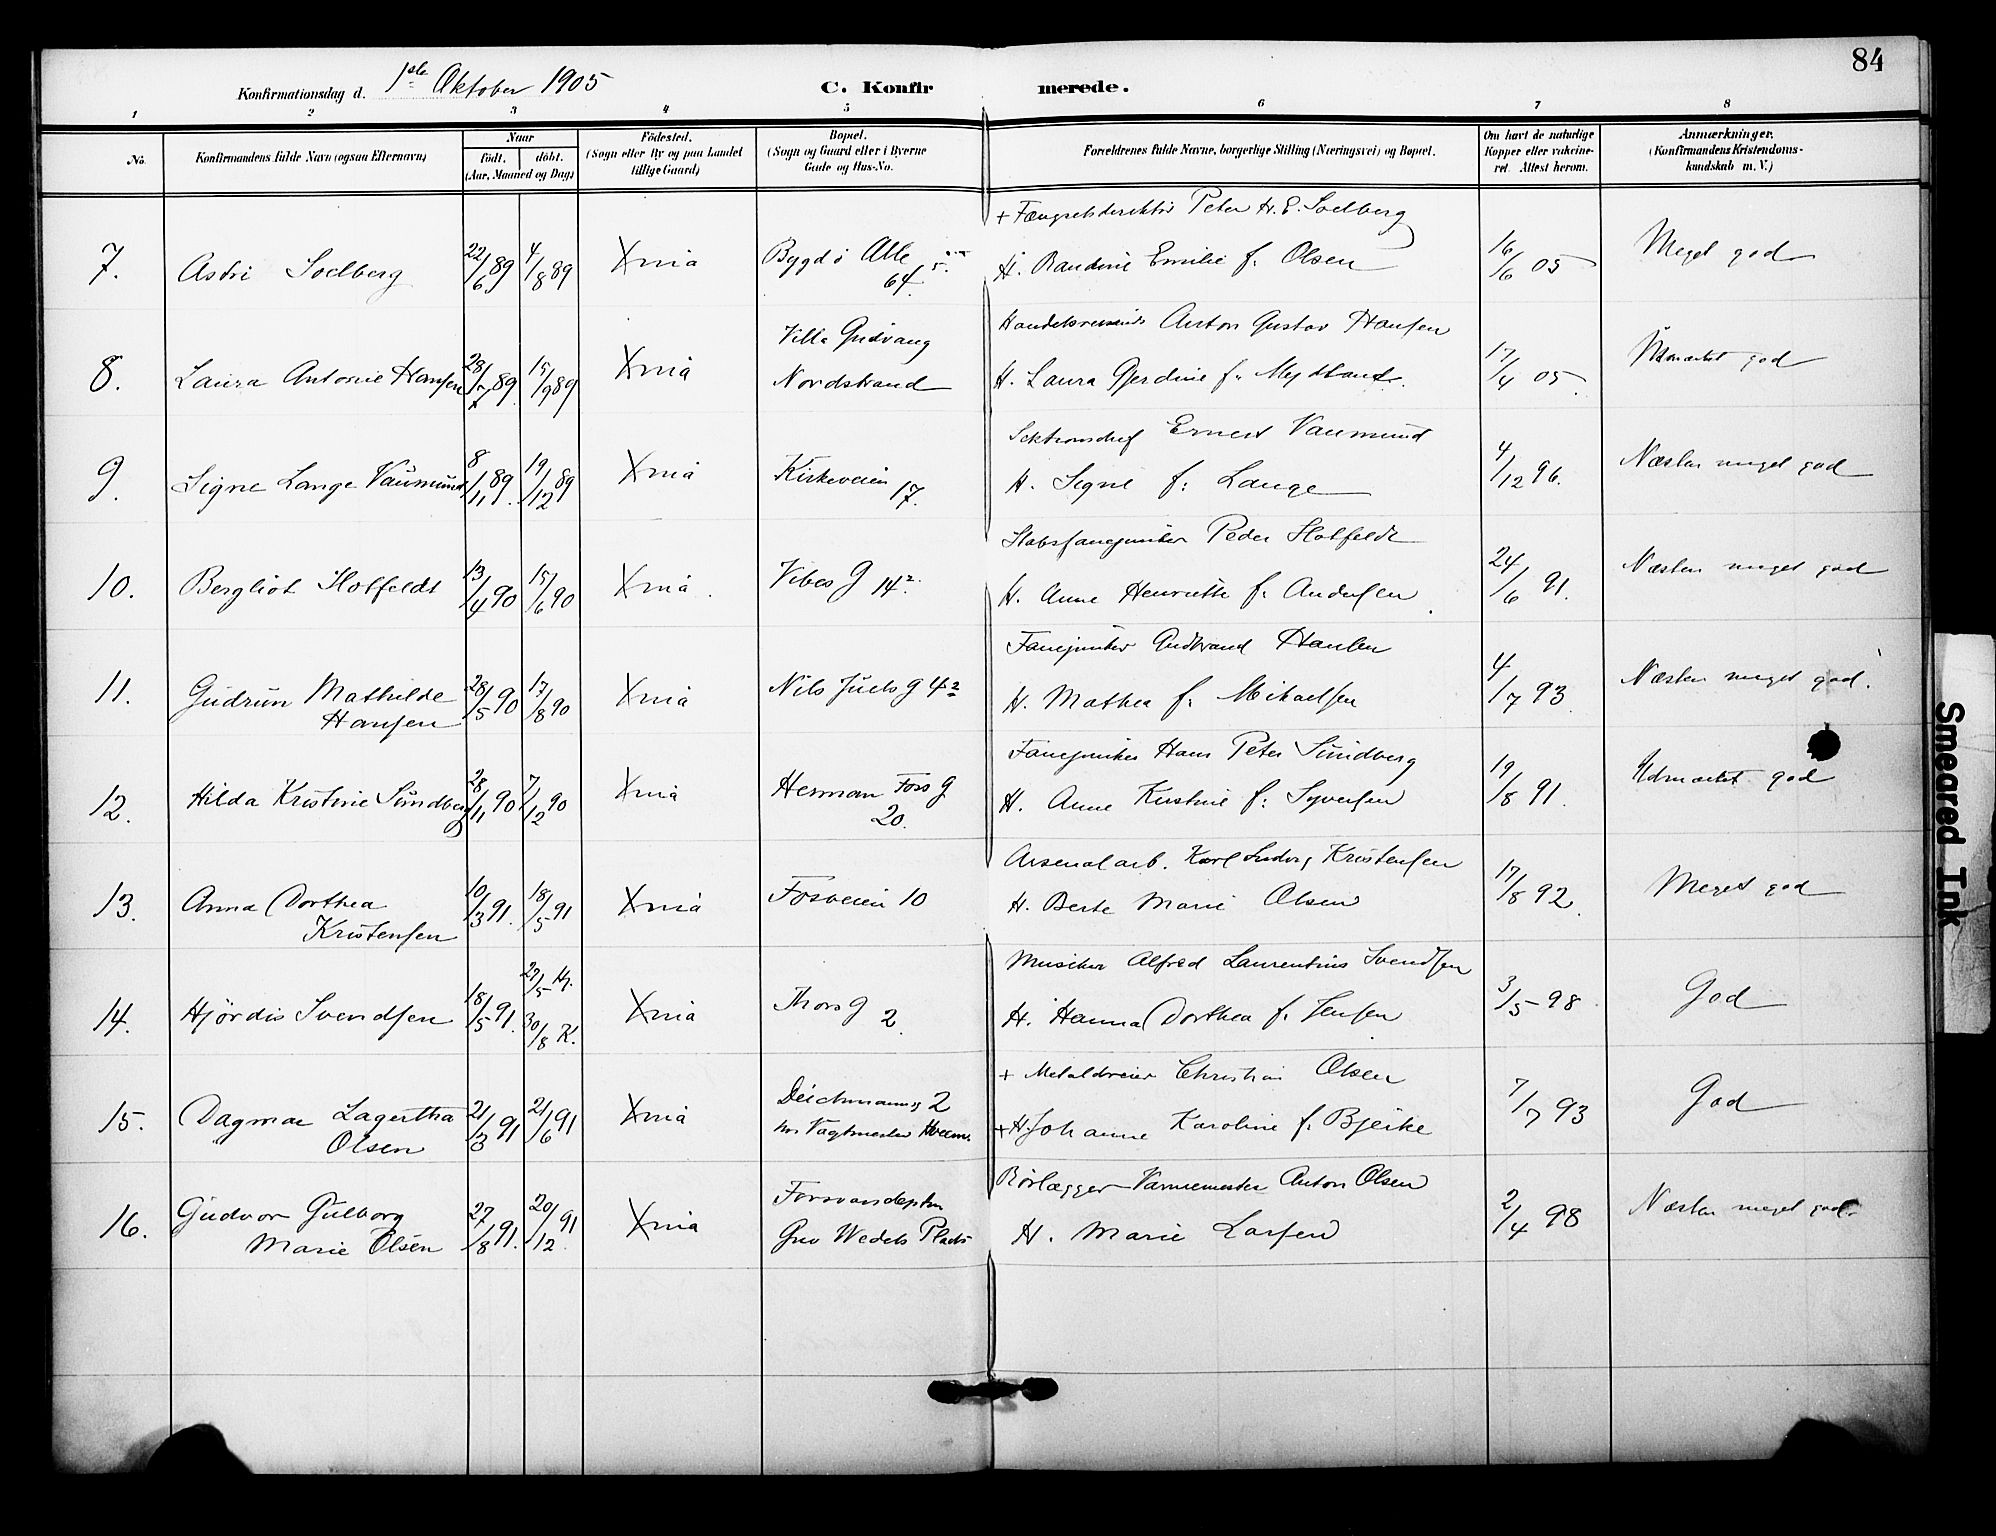 84
Konfirmationsdag d. 1ste Oktober 1905 C. Konfirmerede.
1 2 3 4 5 6 7 8
No. Konfirmandens fulde Navn (ogsaa Efternavn) Naar født. døbt. (Aar, Maaned og Dag) Fødested. (Sogn eller By og paa Landet tillige Gaard) Bopæl. (Sogn og Gaard eller i Byerne Gade og Hus-No. Forældrenes fulde Navne, borgerlige Stilling (Næringsvei) og Bopæl. Om havt de naturlige Kopper eller vakcineret. Attest herom. Anmærkninger. (Konfirmandens Kristendomskundskab m. V.)
+ Fængselsdirektør Peter H. E. Soelberg
7. Astri Soelberg 22/6 89 4/8 89 Xnia Bygdø Alle 64 H. Randine Emilie f. Olsen 16/6 05 Meget god
Handelsreisende Anton Gustav Hansen
8. Laura Antonie Hansen 28/7 89. 15/9 89 Xnia Villa Gudvang Nordstrand H. Laura Gjerdine f. 17/4 05. Udmærket god
Sektionschef Ernest Vaumund
9. Signe Lange Vaumund 8/11 89. 19/12 89 Xnia Kirkeveien 17. H. Signe f: Lange 4/12 96. Næsten meget god
Stabsfanejunker Peder Holfeldt
10. Bergliot Holfeldt 13/4 90 15/6 90 Xnia. Vibes G 14². H. Anne Henriette f. Andersen. 24/6 91. Næsten meget god
Fanejunker Gudbrand Hansen
11. Gudrun Mathilde Hansen 28/5 90 17/8 90 Xnia Nils Juels g 42 H. Mathea f. Mikaelsen 4/7 93. Næsten meget god.
Fanejunker Hans Peter Sundberg
12. Hilda Kristine Sundberg 28/11 90 7/12 90 Xnia Herman Foss G 20. H. Anne Kristine f: Syversen 19/8 91. Udmærket god
Arsenalarb. Karl Ludvig Kristensen
13. Anna Dorthea Kristensen 10/3 91. 18/5 91 Xnia Fosveien 10 H. Berte Marie Olsen 17/8 92. Meget god
Musiker Alfred Laurentius Svendsen
14. Hjördis Svendsen 18/5 91. 27/5 Hj. 30/8 K. Xnia Thors G 2. H. Hanna Dorthea f. Jensen 3/5 98 God
+ Metaldreier Christian Olsen
15. Dagmar Lagertha Olsen 21/3 91 21/6 91 Xnia Deichmansg 2 hos Vagtmester Hveem. + H. Johanne Karoline f. Bjerke 7/7 93 God
Rørlægger Varmemester Anton Olsen
16. Gudvor Gulborg Marie Olsen 27/8 91. 20/12 91 Xnia Forsvarsdepten Grev Wedels Plads H. Marie Larsen 2/4 98 Næsten meget god.
Smeared Ink